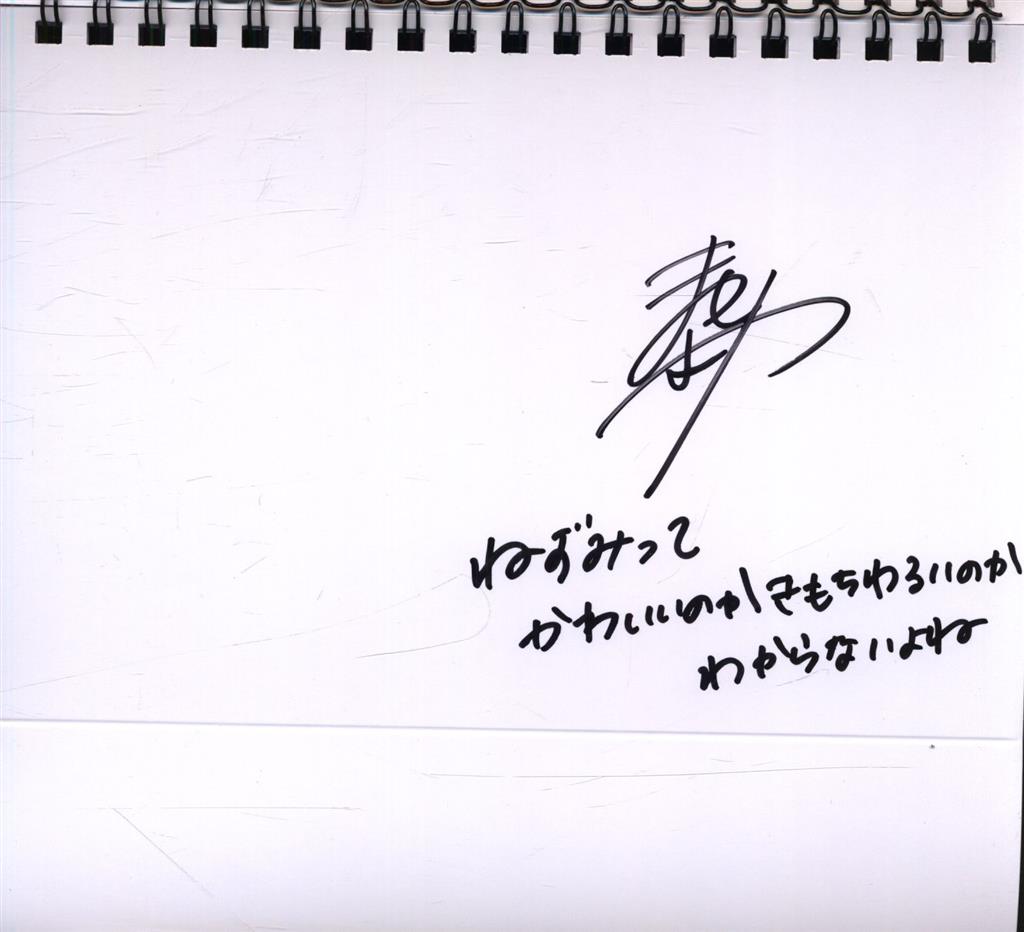 ねずみって
かわいいのかきもちわるいのか
わからないよね